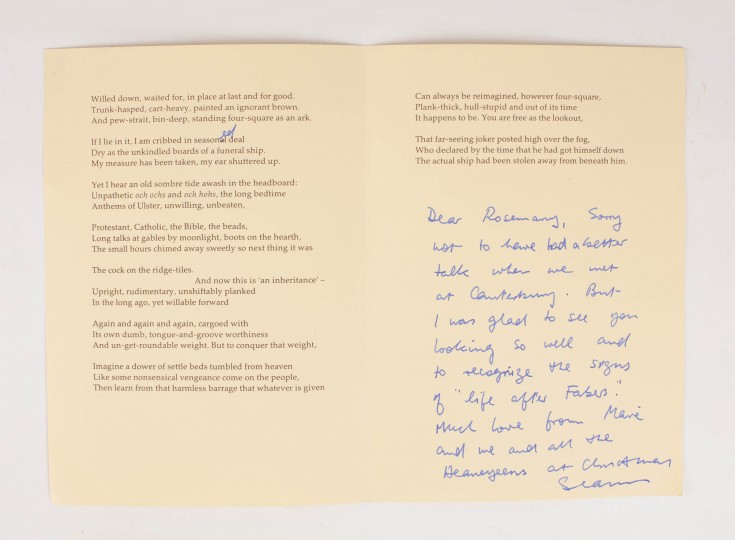 Willed down, waited for, in place at last and for good.
Trunk-hasped, cart-heavy, painted an ignorant brown.
And pew-strait, bin-deep, standing four-square as an ark.
If I lie in it, I am cribbed in seasonal deal
ed
Dry as the unkindled boards of a funeral ship.
My measure has been taken, my ear shuttered up.
Yet I hear an old sombre tide awash in the headboard:
Unpathetic och ochs and och hohs, the long bedtime
Anthems of Ulster, unwilling, unbeaten,
Protestant, Catholic, the Bible, the beads,
Long talks at gables by moonlight, boots on the hearth,
The small hours chimed away sweetly so next thing it was
The cock on the ridge-tiles.
And now this is ‘an inheritance’ –
Upright, rudimentary, unshiftably planked
In the long ago, yet willable forward
Again and again and again, cargoed with
Its own dumb, tongue-and-groove worthiness
And un-get-roundable weight. But to conquer that weight,
Imagine a dower of settle beds tumbled from heaven
Like some nonsensical vengeance come on the people,
Then learn from that harmless barrage that whatever is given
Can always be reimagined, however four-square,
Plank-thick, hull-stupid and out of its time
It happens to be. You are free as the lookout,
That far-seeing joker posted high over the fog,
Who declared by the time that he had got himself down
The actual ship had been stolen away from beneath him.
Dear Rosemary, Sorry
not to have had a better
talk when we met
at Canterbury. But
I was glad to see you
looking so well and
to recognize the signs
of "life after Fabers".
Much love from Marie
and me and all the
Heaneyeens at Christmas
Seamus